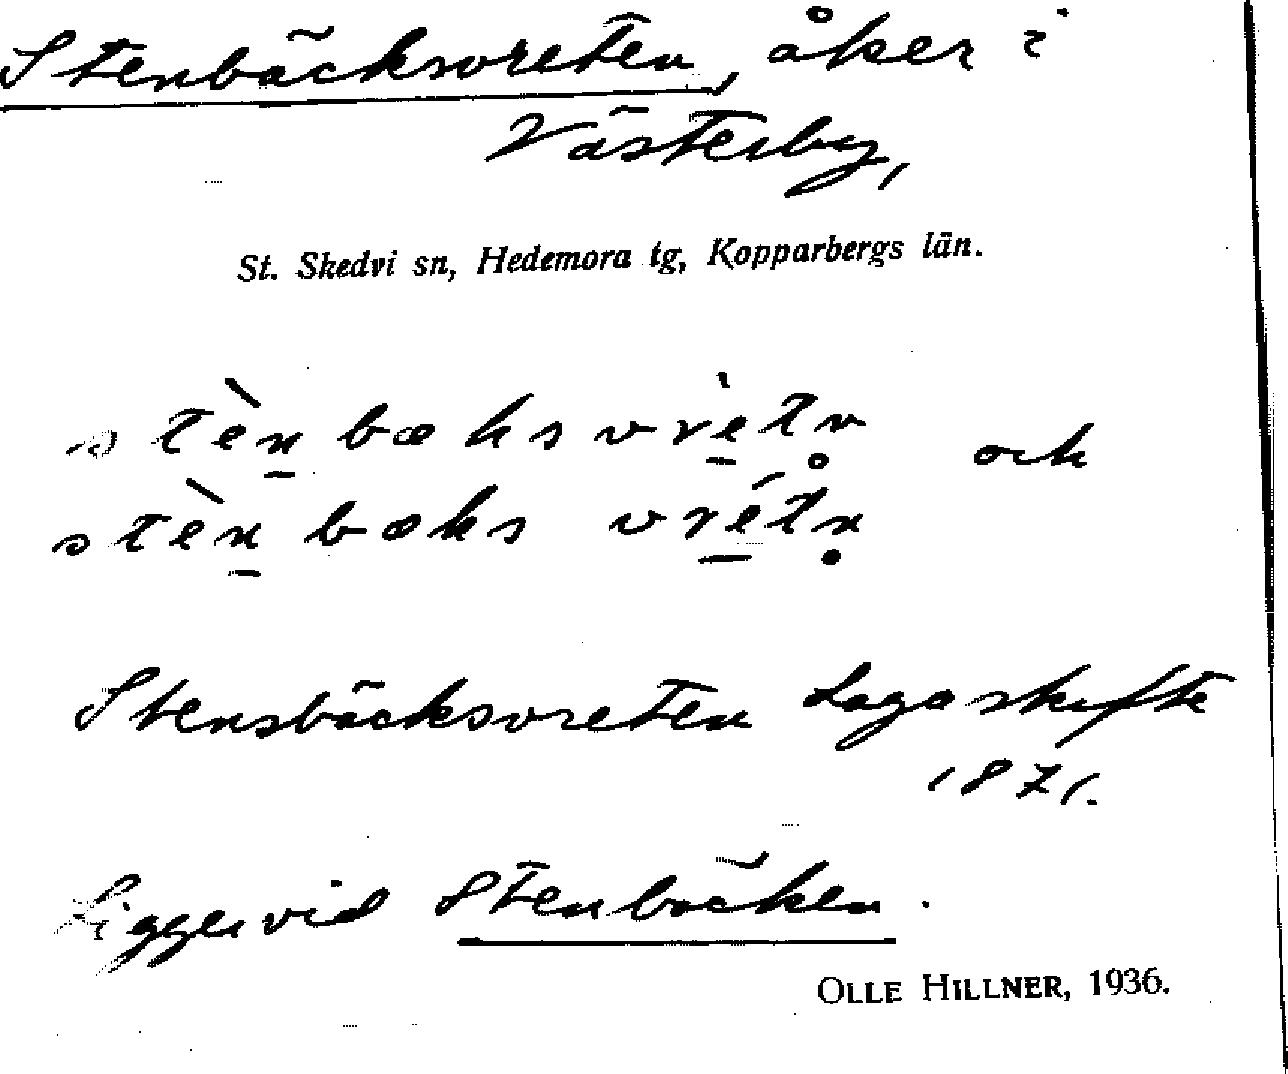 Stenbäcksvreten, åker i
Västerby,
St. Skedvi sn, Hedemora tg, Kopparbergs län.
stèn̲bæksvrè̲tn̥ och
stèn̲bæks vré̲tn̥
Stensbäcksvreten Lagaskifte
1871.
Ligger vid Stenbäcken.
OLLE HILLNER, 1936.